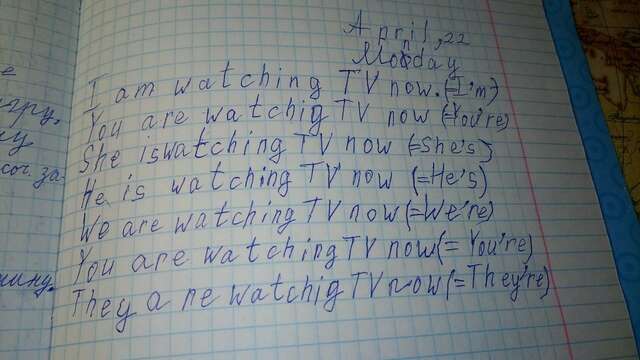 April, 22
Monday
I am watching TV now. (=I'm)
You are watchig TV now (=You're)
She iswatching TV now (=She's)
He is watching TV now (=He's)
We are watching TV now (=We're)
You are watching TV now (= You're)
They are watchig TV now (=They're)
е
ару.
ну
соч. за
ину.